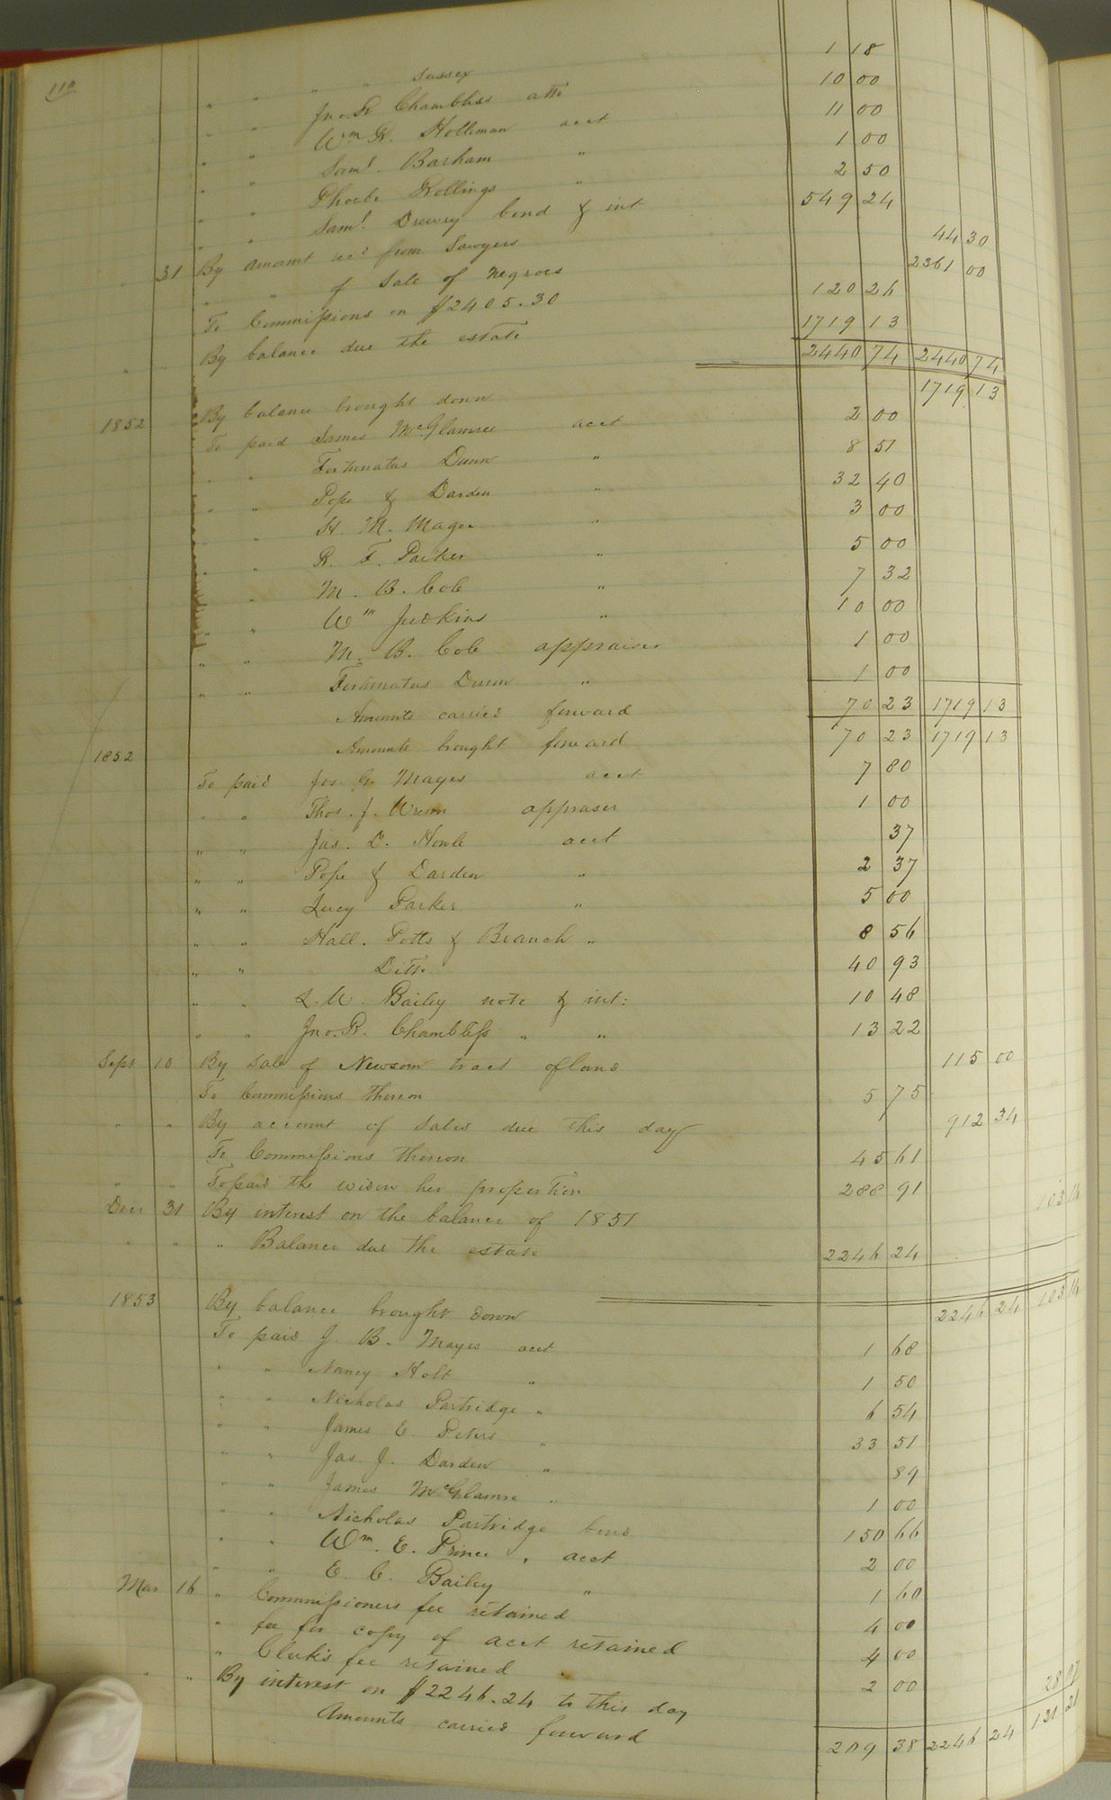 110
" " " " Sussex 1 18
" " Jno. R. Chambliss atto 10 00
" " Wm. R. Holleman acct 11 00
" " Saml. Barham " 1 00
" " Phoebe Rollings " 2 50
" " Saml. Drewry bond & int 549 24
31 By amount recd from Sawyers 44 30
" " of Sale of Negroes 2361 00
To Commissions on $2405.30 120 26
By balance due the estate 1719 13
2440 74 2440 74
1852 By balance brought down 1719 13
To paid James McGlamree acct 2 00
" " Fortunatus Dunn " 8 51
" " Pope & Darden " 32 40
" " H. M. Magee " 3 00
" " R. F. Parker " 5 00
" " M. B. Cob " 7 32
" " Wm Judkins " 10 00
" " M. B. Cob appraiser 1 00
" " Fortunatus Dunn " 1 00
Amounts carried forward 70 23 1719 13
1852 Amounts brought forward 70 23 1719 13
To paid Jos. G. Mayes acct 7 80
" " Thos. J. Wrenn appraser 1 00
" " Jas. D. Howle acct 37
" " Pope & Darden " 2 37
" " Lucy Parker " 5 00
" " Hall. Potts & Branch " 8 56
" " Ditto 40 93
" " L. W. Bailey note & int: 10 48
" " Jno. R. Chambliss " " 13 22
Sept 10 By Sale of Newsom tract of land 115 00
To Commissions thereon 5 75
" " By account of sales due this day 912 34
To Commissions thereon 45 61
" " To paid the widow her proportion 288 91
Decr 31 By interest on the balance of 1851 103 14
" " " Balance due the estate 2246 24
1853 By balance brought down 2246 24 103 14
To paid J. B. Mayes acct 1 68
" " Nancy Holt " 1 50
" " Nicholas Partridge " 6 54
" " James E Peters " 33 51
" " Jas. J. Darden " 89
" " James McGlamre " 1 00
" " Nicholas Partridge bond 150 66
" " Wm. E. Prince " acct 2 00
" " E. C. Bailey " 1 60
Mar 16 " Commissioners fee retained 4 00
" fee for copy of acct retained 4 00
" Clerk's fee retained 2 00
" " By interest on $2246.24 to this day 28 07
Amounts carried forward 209 38 2246 24 131 21